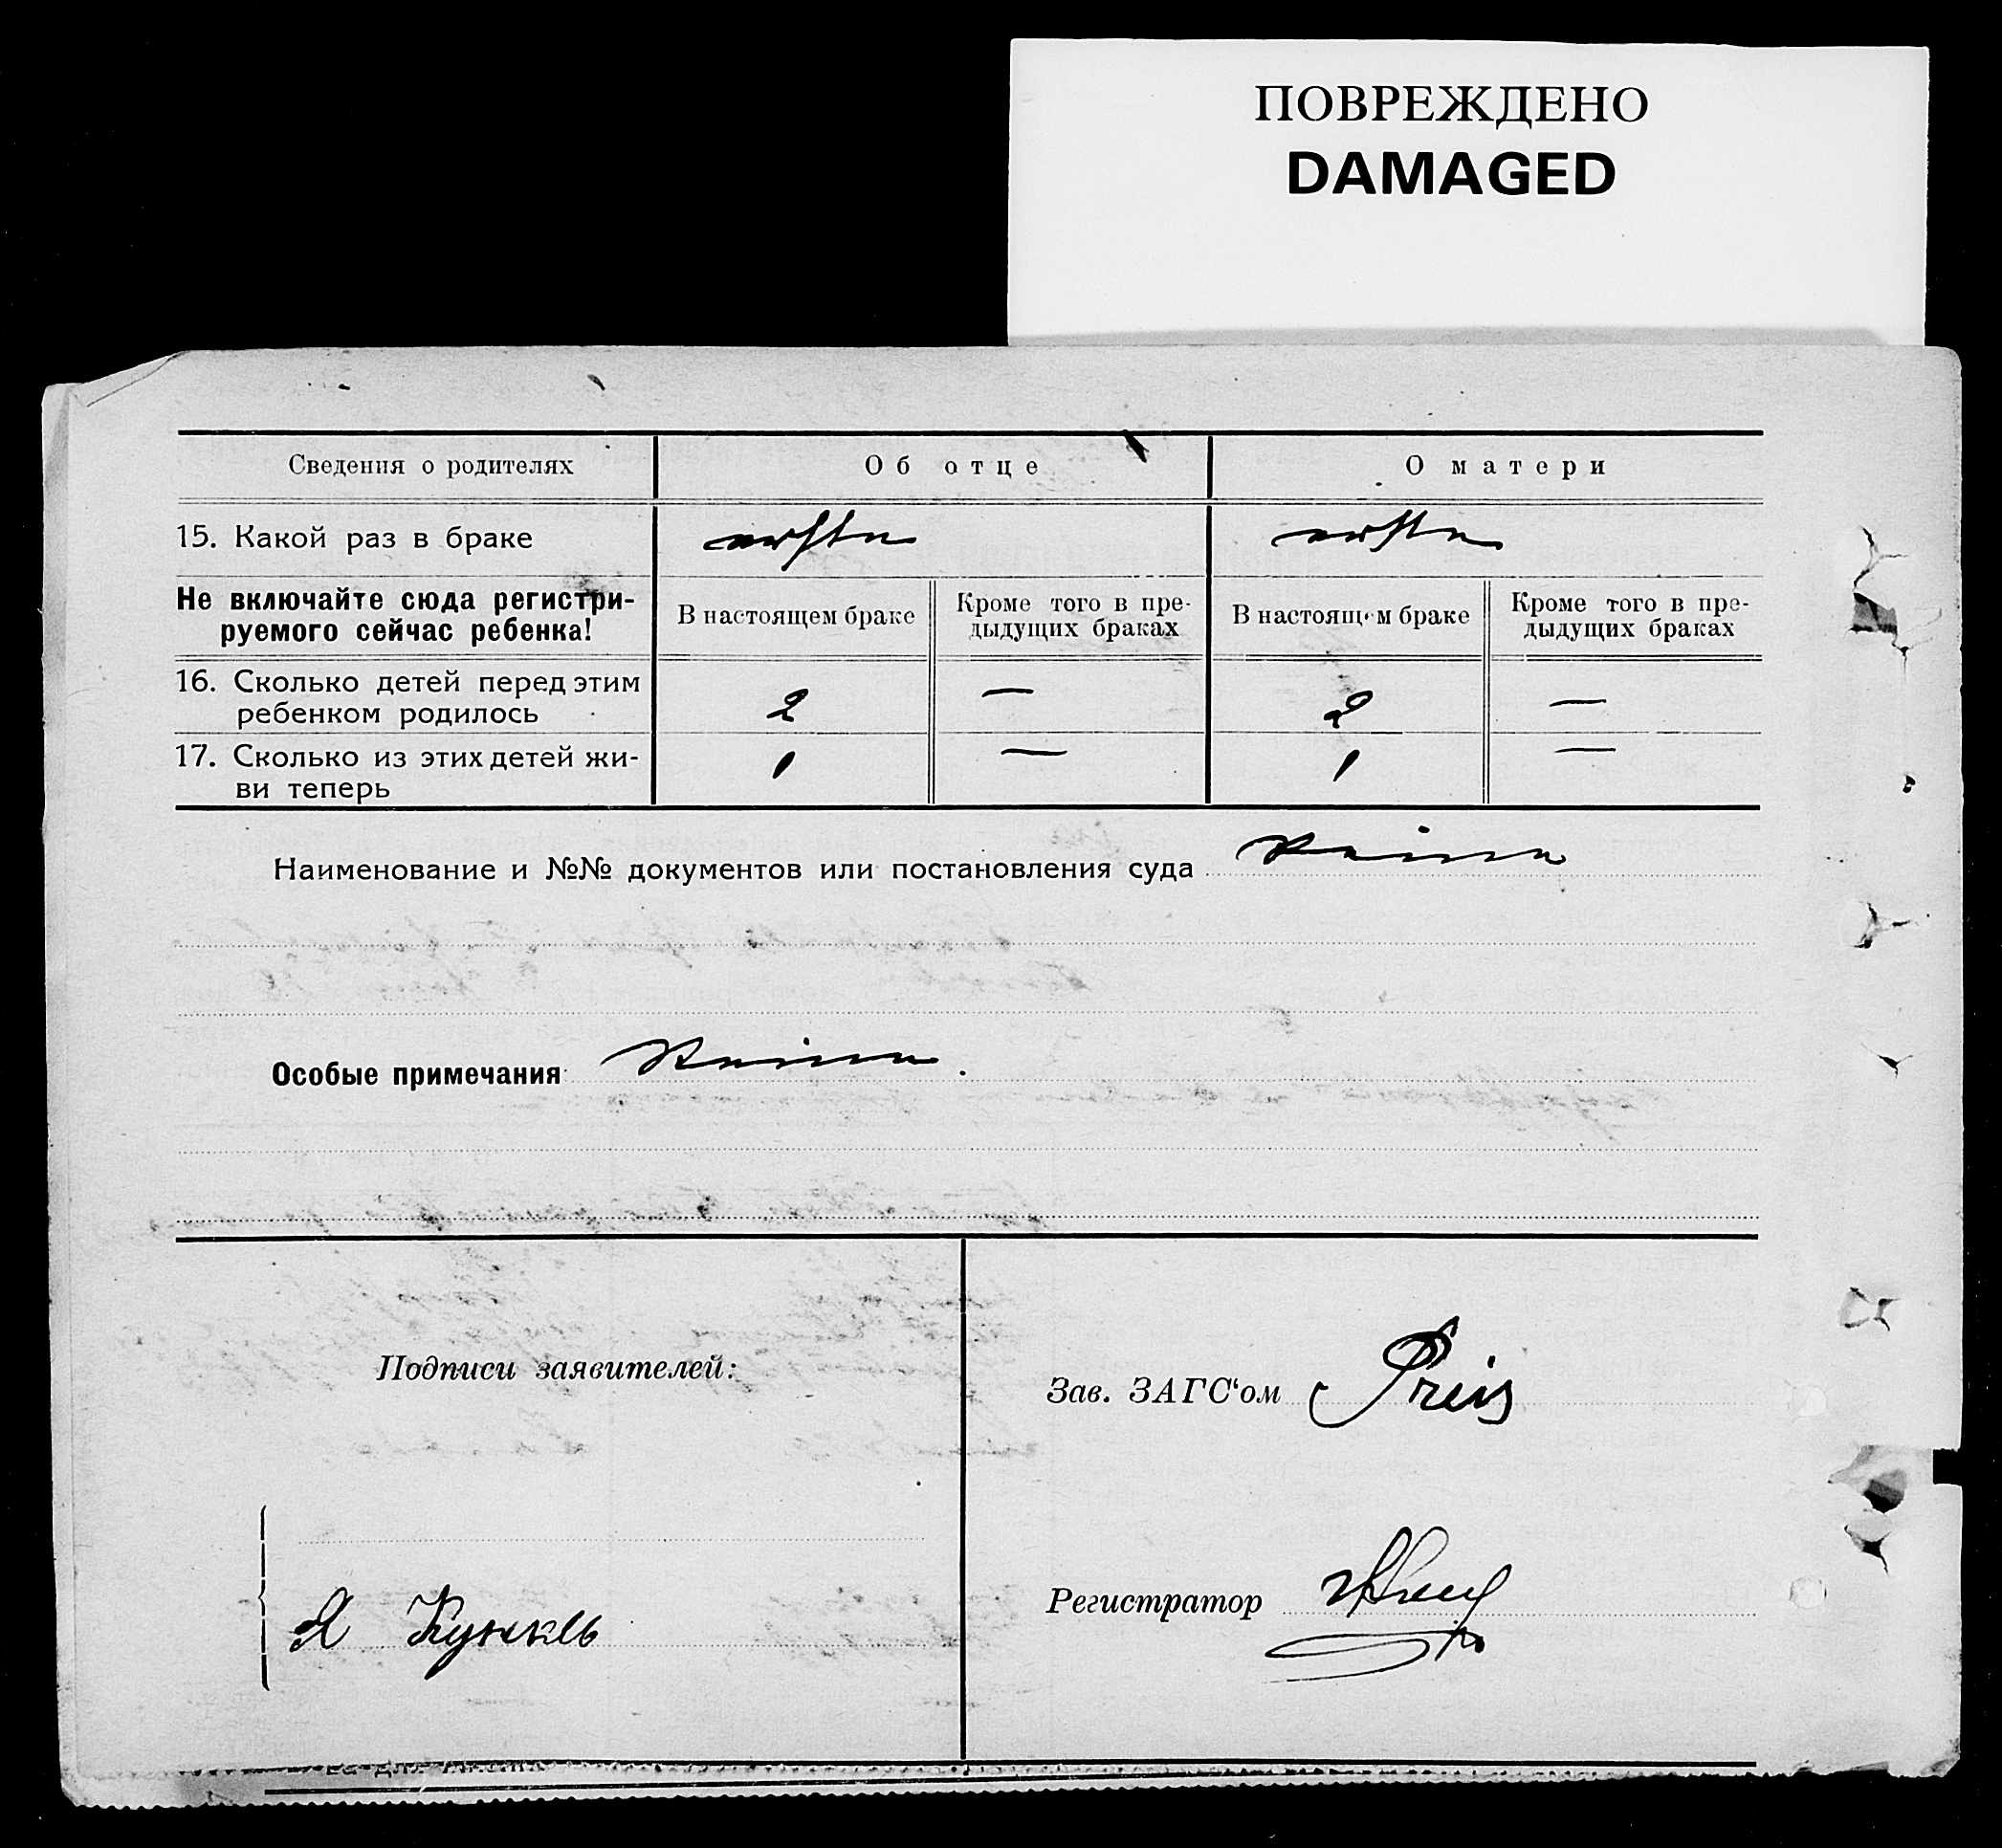 ПОВРЕЖДЕНО
DAMAGED
Сведения о родителях
Об отце
О матери
15. Какой раз в браке
erste
erste
Не включайте сюда регистри-
руемого сейчас ребенка!
В настоящем браке
Кроме того в пре-
дыдущих браках
В настоящем браке
Кроме того в пре-
дыдущих браках
16. Сколько детей перед этим
ребенком родилось
2 — 2 —
17. Сколько из этих детей жи-
ви теперь
1 — 1 —
Наименование и №№ документов или постановления суда Keine
Особые примечания Keine.
Подписи заявителей:
Зав. ЗАГС'ом Preis
Регистратор
Я Кункель